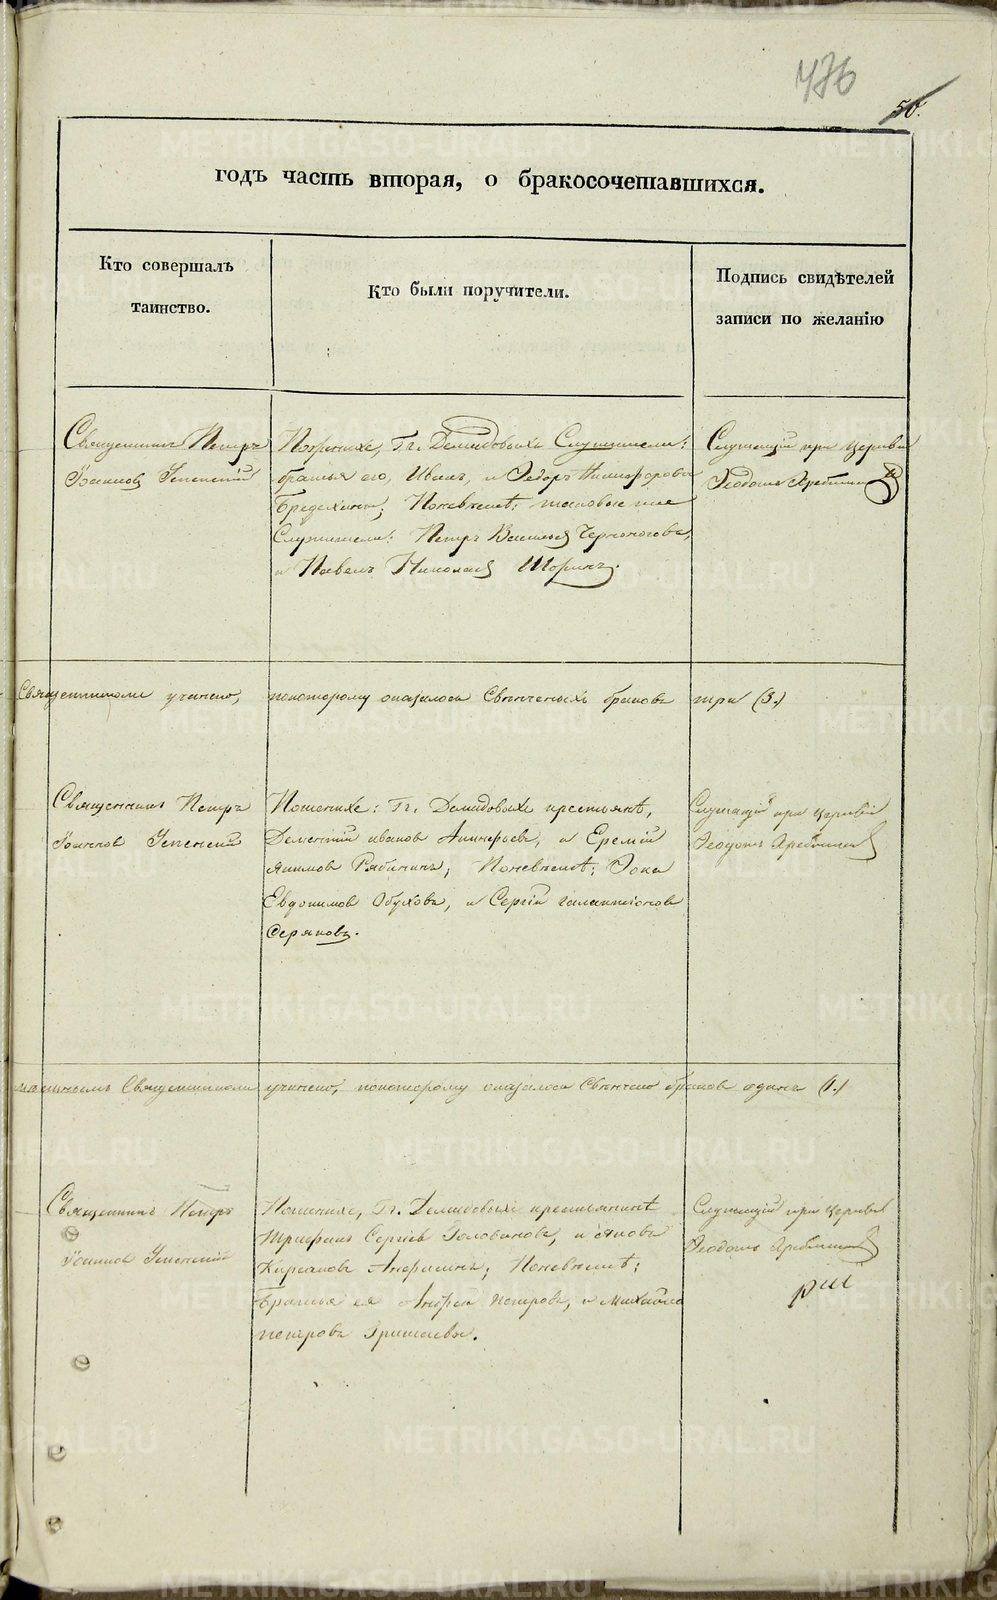 476
50.
годъ часть вторая, о бракосочетавшихся.
Кто совершалъ
таинство.
Кто были поручители.
Подпись свидѣтелей
записи по желанію
Священникъ Петръ
Іоанновъ Успенскій
По женихѣ, Гг. Демидовыхъ Служители:
братья его, Иванъ, и Ѳедоръ Никифоровы
Бредихины; По невѣстѣ: таковые же
Служители: Петръ Васильевъ Черноногова,
и Павелъ Николаевъ Шоринъ.
Служащій при церкви
Ѳеодотъ
Священниками учинено, по которому оказалося Свѣнченыхъ браковъ три (3.)
Священникъ Петръ
Іоаннов Успенскій
По женихѣ: Гг. Демидовыхъ крестьянѣ,
Дементій иванов и Еремѣй
якимов Рябининъ; По невѣстѣ; Фока
Евдокимов Обуховъ, и Сергій галактіонов
Серяковъ.
Служащій при церквѣ
Ѳеодотъ
Священниками учинено, по которому оказалося Свѣнчено браков один (1.)
Священникъ Петръ
Іоаннов Успенскій
По женихѣ, Гг. Демидовыхъ крестьянинѣ
Трифанъ Сергѣевъ Головановъ, и Яковъ
Кирсановъ По невѣстѣ:
Братья ея Андрей петровъ, и Михайло
петровъ Гришаевы.
Служащій при Церквѣ
Ѳеодотъ
METRIKI.GASO-URAL.RU